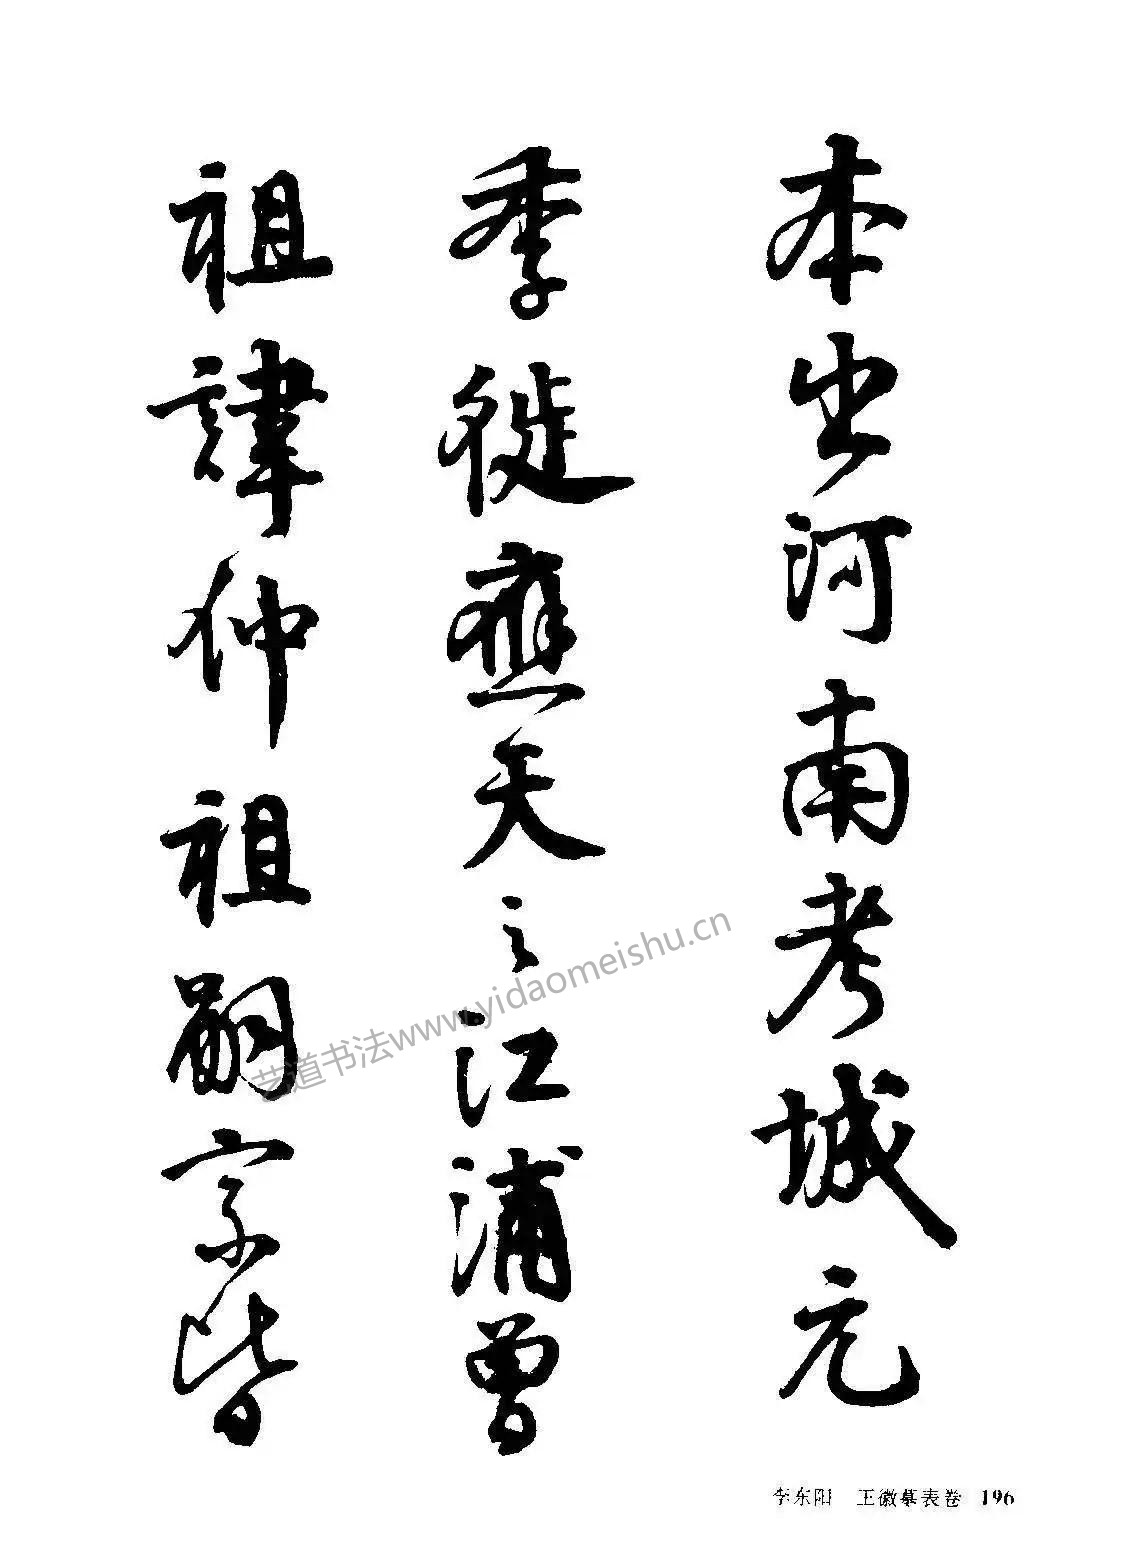 本出河南考城元
季徙應天之江浦曾
祖諱仲祖嗣宗皆
艺道书法www.yidaomeishu.cn
李东阳 王徽墓表卷 196